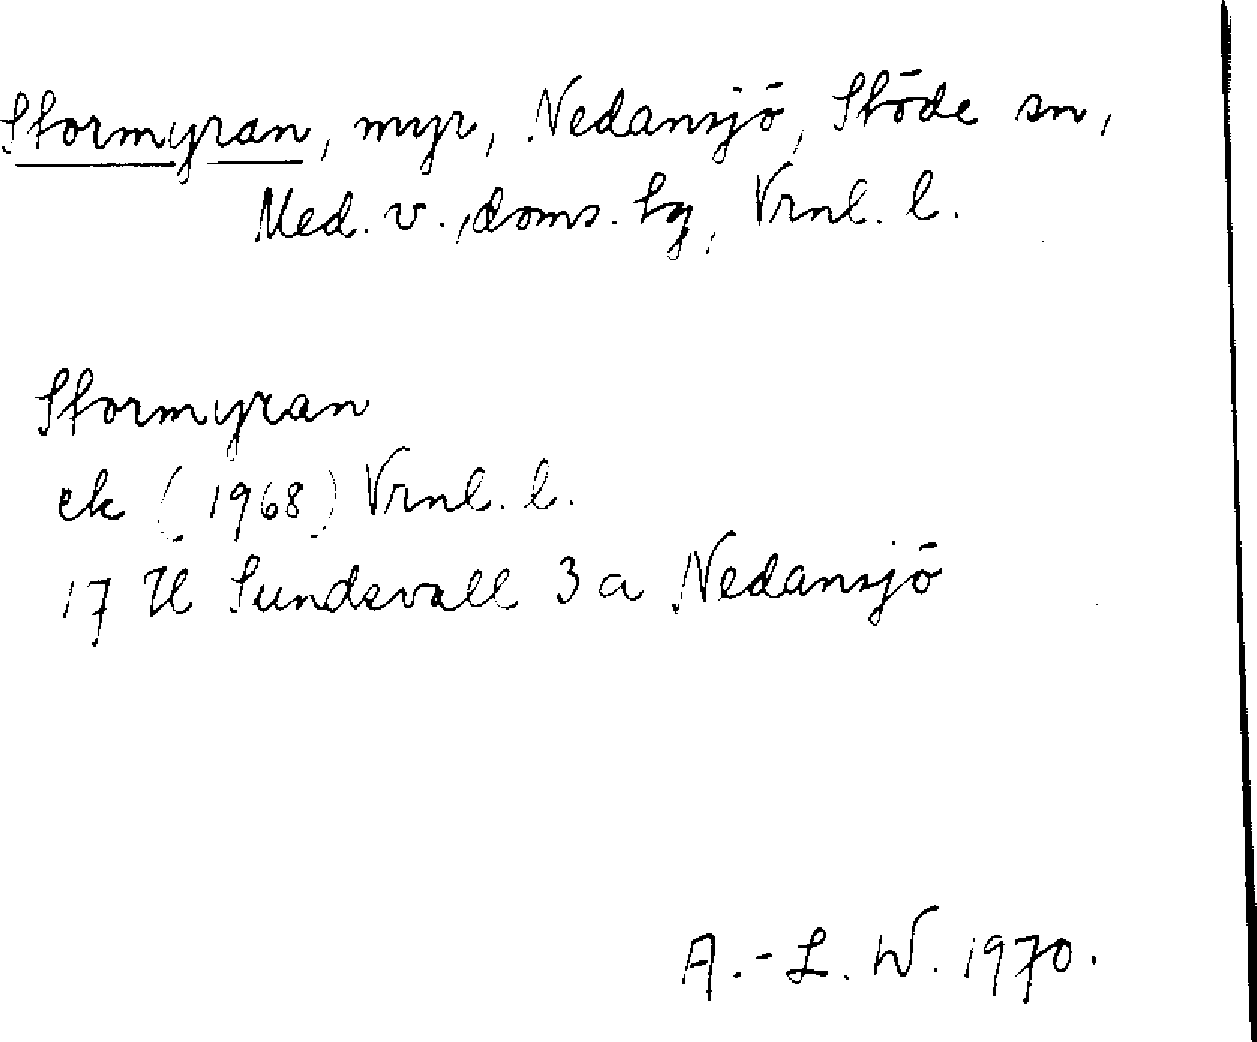 Stormyran, myr, Nedansjö, Stöde sn,
Med. v., doms. hg, Vrnl. l.
Stormyran
ek (1968) Vrnl. l.
17 H Sundsvall 3 a Nedansjö
A.-L. W. 1970.